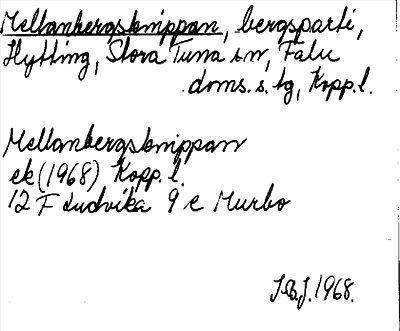 Mellanbergsknippan, bergsparti,
Hytting, Stora Tuna sn, Falu
doms. s. tg, Kopp. l.
Mellanbergsknippan
ek (1968) Kopp. l.
12 F Ludvika 9 c Murbo
J.B.J. 1968.